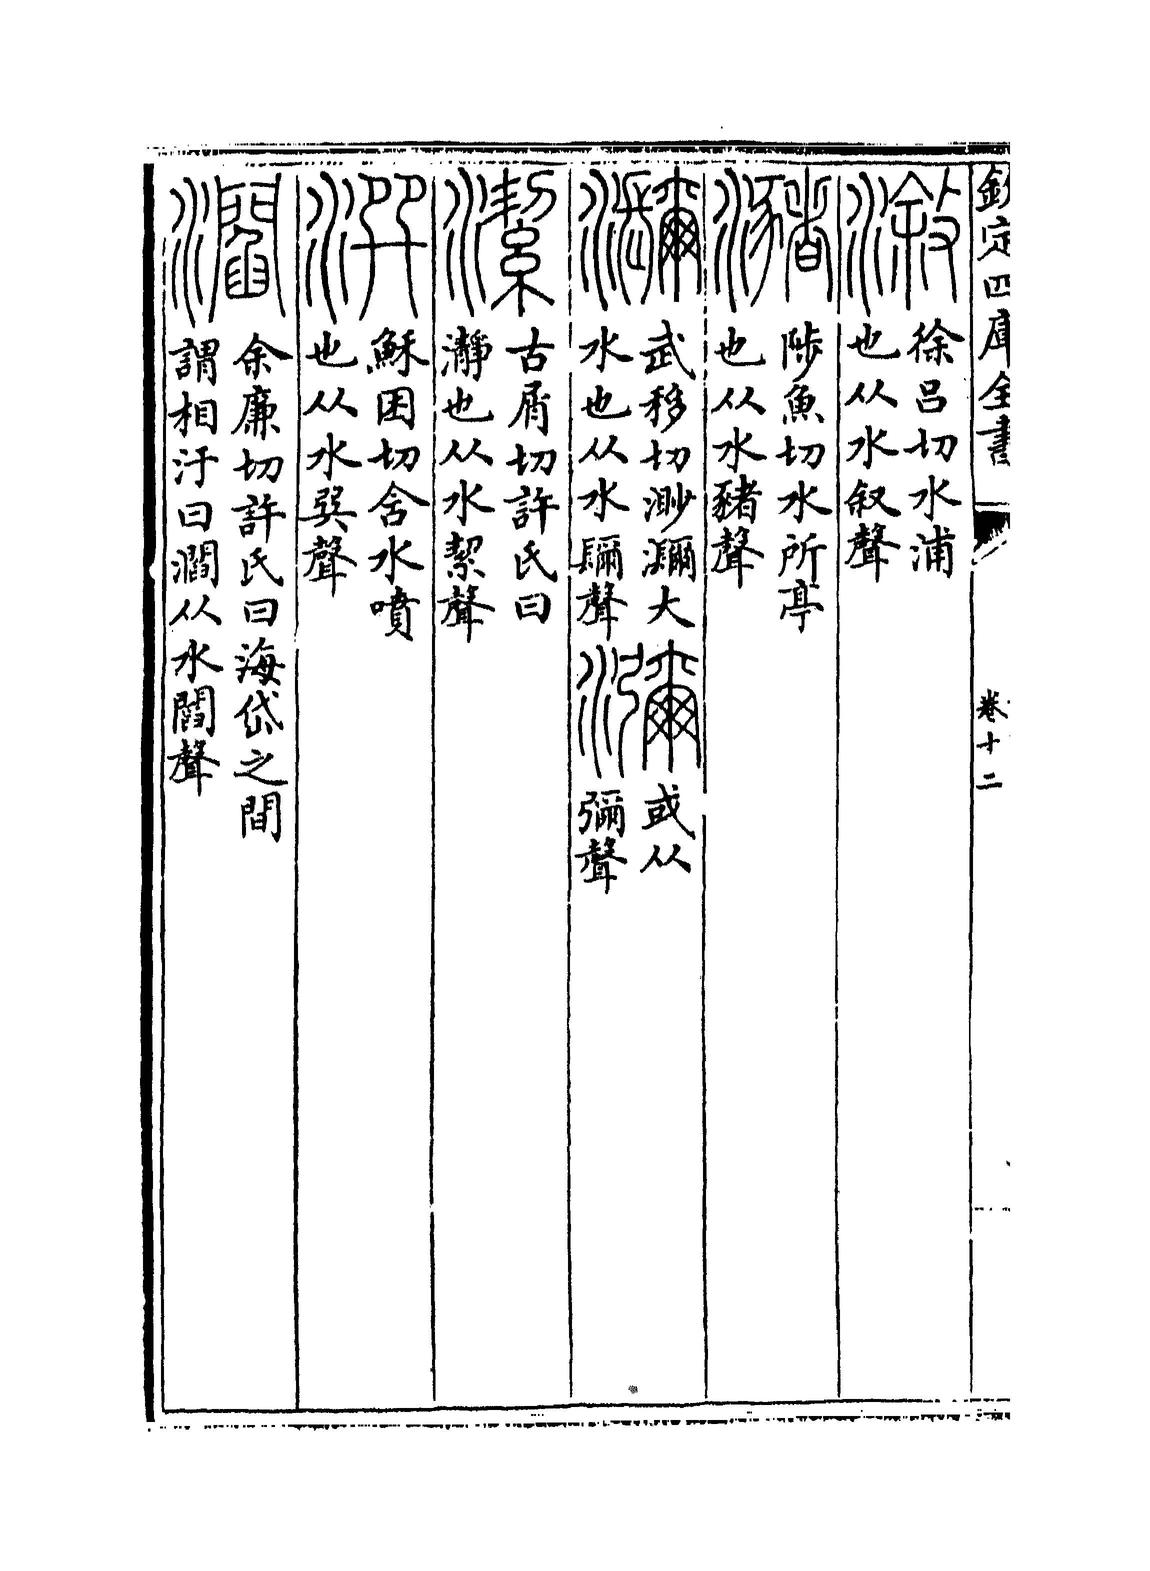 欽定四庫全書 卷十二
漵
徐呂切水浦
也从水叙聲
瀦
陟魚切水所亭
也从水豬聲
瀰
武移切渺瀰大
水也从水镾聲
瀰
或从
彌聲
潔
古屑切許氏曰
瀞也从水絜聲
潠
穌困切含水噴
也从水巽聲
㶒
余廉切許氏曰海岱之間
謂相汙曰㶒从水閻聲